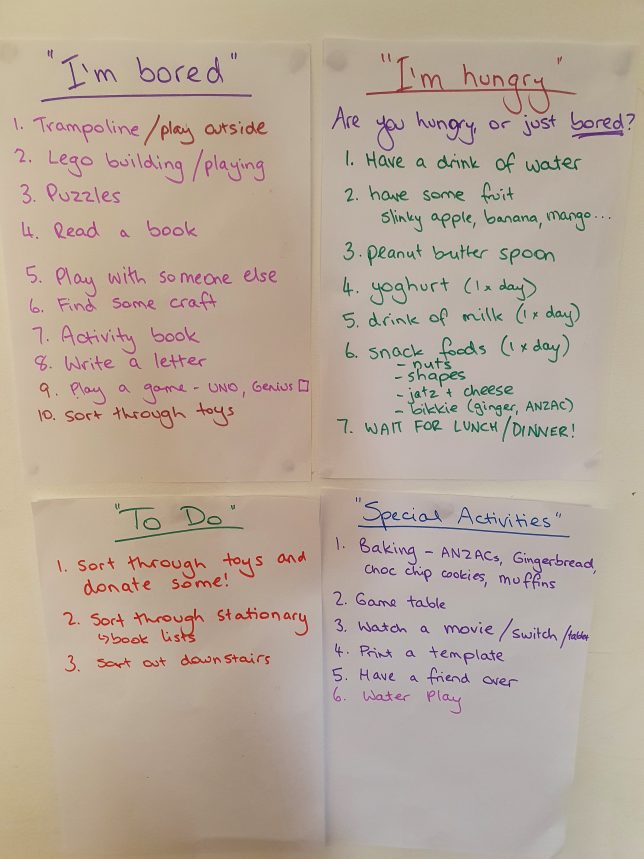 "I'm bored"
1. Trampoline/play outside
2. Lego building/playing
3. Puzzles
4. Read a book
5. Play with someone else
6. Find some craft
7. Activity book
8. Write a letter
9. Play a game - UNO, Genius □
10. Sort through toys
"I'm hungry"
Are you hungry, or just bored?
1. Have a drink of water
2. have some fruit
slinky apple, banana, mango...
3. peanut butter spoon
4. yoghurt (1x day)
5. drink of milk (1x day)
6. snack foods (1x day)
- nuts
- shapes
- jatz + cheese
- bikkie (ginger, ANZAC)
7. WAIT FOR LUNCH/DINNER!
"To Do"
1. Sort through toys and
donate some!
2. Sort through stationary
↳ book lists
3. Sort out downstairs
"Special Activities"
1. Baking - ANZACs, Gingerbread,
choc chip cookies, muffins
2. Game table
3. Watch a movie/switch/tablet
4. Print a template
5. Have a friend over
6. Water Play